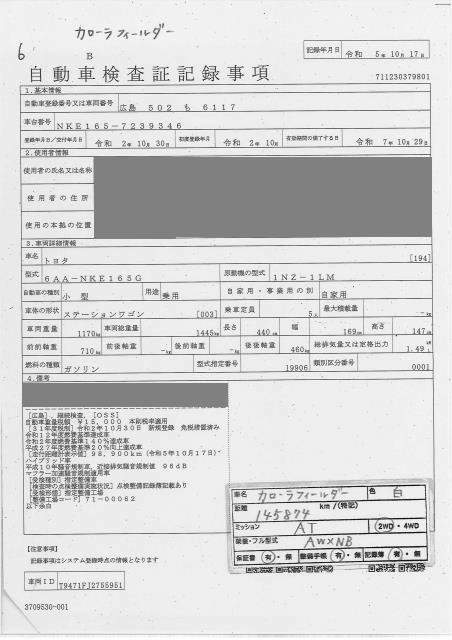 カローラフィールダー
6
B
記録年月日 令和 5年 10月 17日
自動車検査証記録事項
711230379801
1.基本情報
自動車登録番号又は車両番号 広島 502 も 6117
車台番号 NKE165-7239346
登録年月日/交付年月日 令和 2年 10月 30日 初度登録年月 令和 2年 10月 有効期間の満了する日 令和 7年 10月 29日
2.使用者情報
使用者の氏名又は名称
使用者の住所
使用の本拠の位置
3.車両詳細情報
車名 トヨタ [194]
型式 6AA-NKE165G 原動機の型式 1NZ-1LM
自動車の種別 小型 用途 乗用 自家用・事業用の別 自家用
車体の形状 ステーションワゴン [003] 乗車定員 5人 最大積載量 -kg
車両重量 1170kg 車両総重量 1445kg 長さ 440cm 幅 169cm 高さ 147cm
前前軸重 710kg 前後軸重 -kg 後前軸重 -kg 後後軸重 460kg 総排気量又は定格出力 1.49L
燃料の種類 ガソリン 型式指定番号 19906 類別区分番号 0001
4.備考
[広島],継続検査,[OSS]
自動車重量税額 ¥15,000 本則税率適用
[31年度税制]令和2年10月30日 新規登録 免税措置済み
令和12年度燃費基準達成車
令和2年度燃費基準140%達成車
平成27年度燃費基準20%向上達成車
[走行距離計表示値]98,900km(令和5年10月17日)
ハイブリッド車
平成10年騒音規制車,近接排気騒音規制値 96dB
マフラー加速騒音規制適用車
[受検種別]指定整備車
[検査時の点検整備実施状況]点検整備記録簿記載あり
[受検形態]指定整備工場
[整備工場コード]71-00062
以下余白
車名 カローラフィールダー 色 白
距離 145874 km/(特記)
ミッション AT 2WD・4WD
装備・フル型式 AWXNB
保証書 有・無 整備手帳 有・無 記録簿 有・無
[注意事項]
記録事項はシステム登録時点の情報となります
車両ID T9471FJ2755951
3709530-001